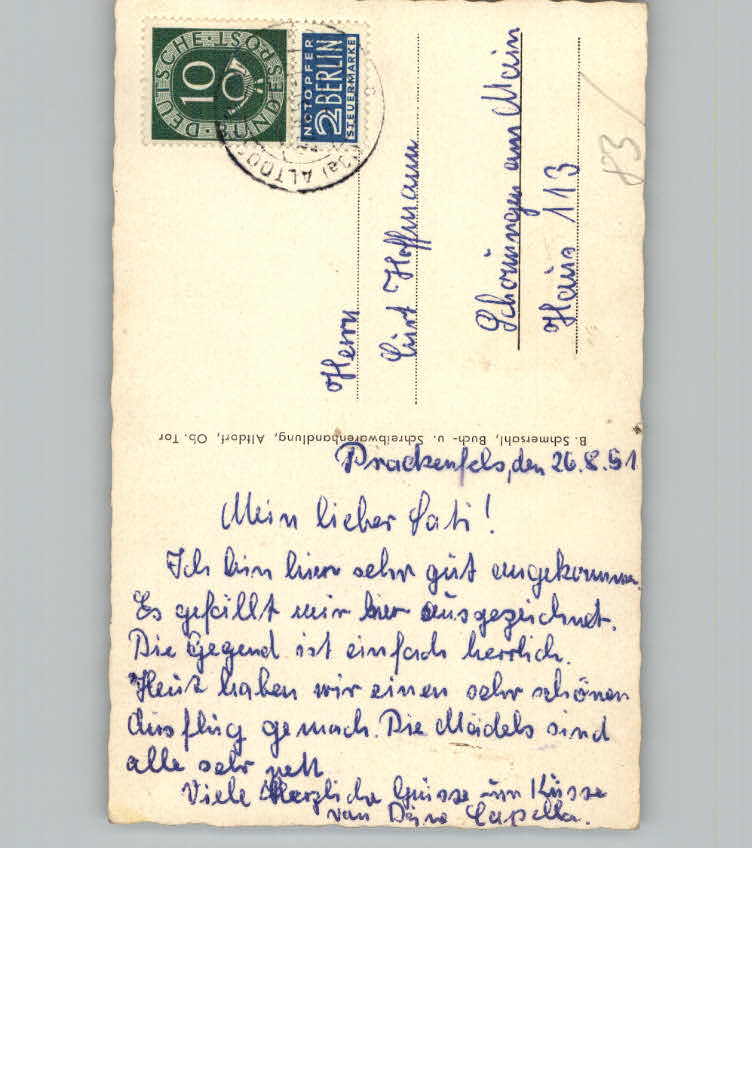 DEUTSCHE BUNDESPOST
10
NOTOPFER
2 BERLIN
STEUERMARKE
ALTDO
83
Herrn
Curt Hoffmann
am Main
Haus 113
B. Schmersahl, Buch- u. Schreibwarenhandlung, Altdorf, Ob. Tor
Prackenfels, den 26.8.51
Mein lieber Vati!
Ich bin hier sehr gut angekommen.
Es gefällt mir hier ausgezeichnet.
Die Gegend ist einfach herrlich.
Heut haben wir einen sehr schönen
Ausflug gemach. Die Mädels sind
alle sehr nett
Viele Herzliche Grüsse un Küsse
von Deine